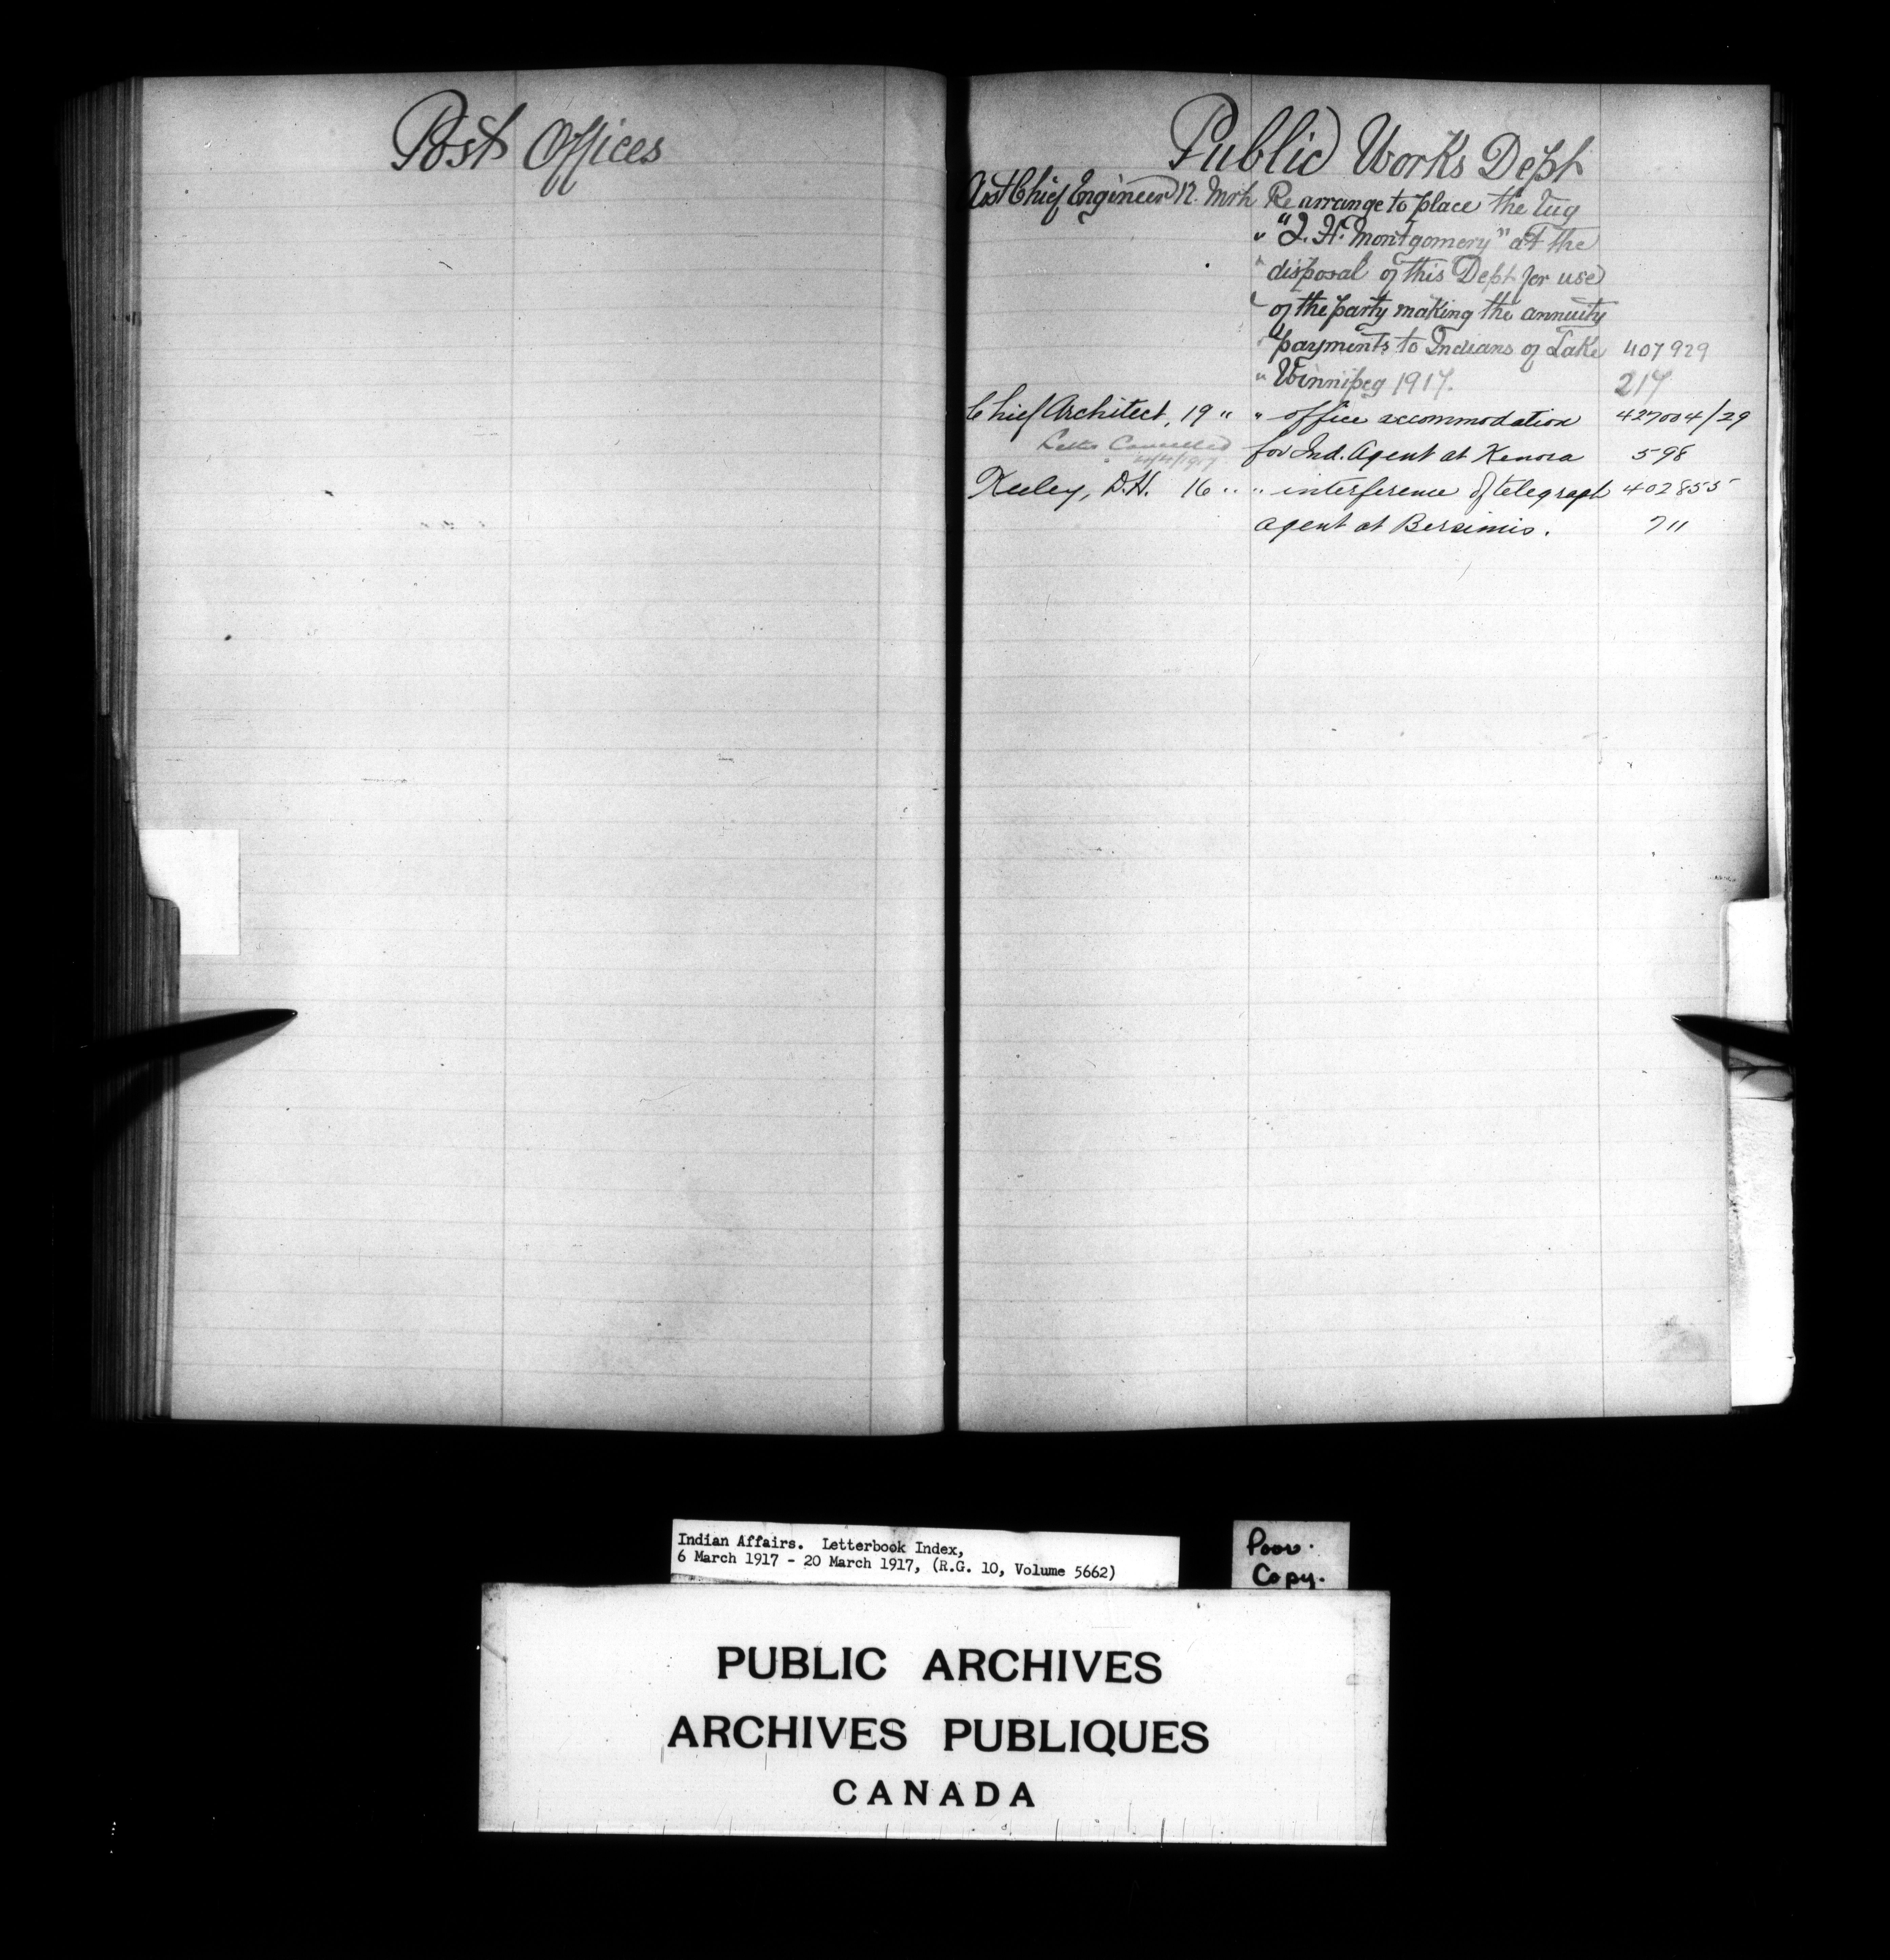 Post Offices
Public Works Dept
Asst Chief Engineer 12. Mrh Re arrange to place the tug
" "J. H. Montgomery" at the
" disposal of this Dept for use
" of the party making the annuity
" payments to Indians of Lake 407929
" Winnipeg 1917. 217
Chief Architect, 19 " " office accommodation 427004/29
Letter Cancelled for Ind. Agent at Kenora 598
4/4/1917
Keeley, D.H. 16 " " interference of telegraph 402855
agent at Bersimis. 711
Indian Affairs. Letterbook Index,
6 March 1917 - 20 March 1917, (R.G. 10, Volume 5662)
Poor.
Copy.
PUBLIC ARCHIVES
ARCHIVES PUBLIQUES
CANADA